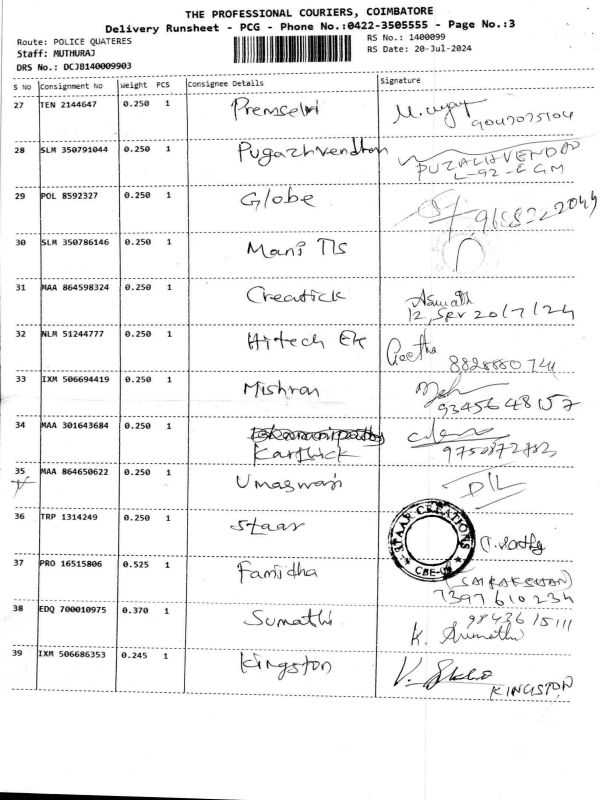 THE PROFESSIONAL COURIERS, COIMBATORE
Delivery Runsheet - PCG - Phone No.:0422-3505555 - Page No.:3
Route: POLICE QUATERES
RS No.: 1400099
Staff: MUTHURAJ
RS Date: 20-Jul-2024
DRS No.: DCJB140009903
S No Consignment No Weight PCS Consignee Details Signature
27 TEN 2144647 0.250 1 Premselvi
9047075104
28 SLM 350791044 0.250 1 Pugazhvendhan
PUZALHVENDAD
L-92-EGM
29 POL 8592327 0.250 1 Globe
30 SLM 350786146 0.250 1 Mani TIs
31 MAA 864598324 0.250 1 Creatick Asmath
20/7/24
32 NLM 51244777 0.250 1 Hitech Ek Geetha
33 IXM 506694419 0.250 1
9345648157
34 MAA 301643684 0.250 1
Karthick
35 MAA 864650622 0.250 1 Umaswari D/L
36 TRP 1314249 0.250 1 Staar
STAAR CREATIONS
37 PRO 16515806 0.525 1 Famidha
7397610234
38 EDQ 700010975 0.370 1 Sumathi
9843615111
K. Sumathi
39 IXM 506686353 0.245 1 Kingston
KINGSTON